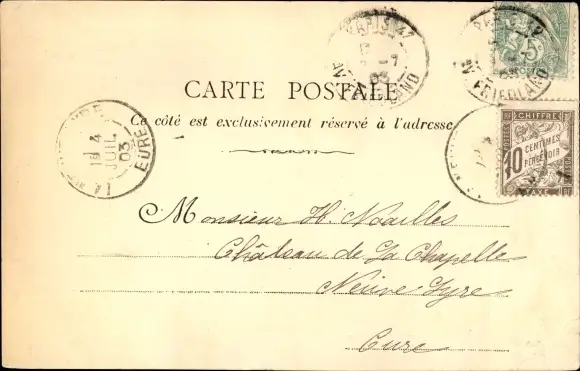 PARIS 47
-7
03
AV. FRIEDLAND
PARIS 47
03
AV. FRIEDLAND
5
CARTE POSTALE
Ce côté est exclusivement réservé à l'adresse
CHIFFRE
10 CENTIMES
À PERCEVOIR
TAXE
POSTES
LA NEUVE LYRE
4
JUIL
03
EURE
Monsieur H. Noailles
Château de La Chapelle
Neuve-Lyre
Eure